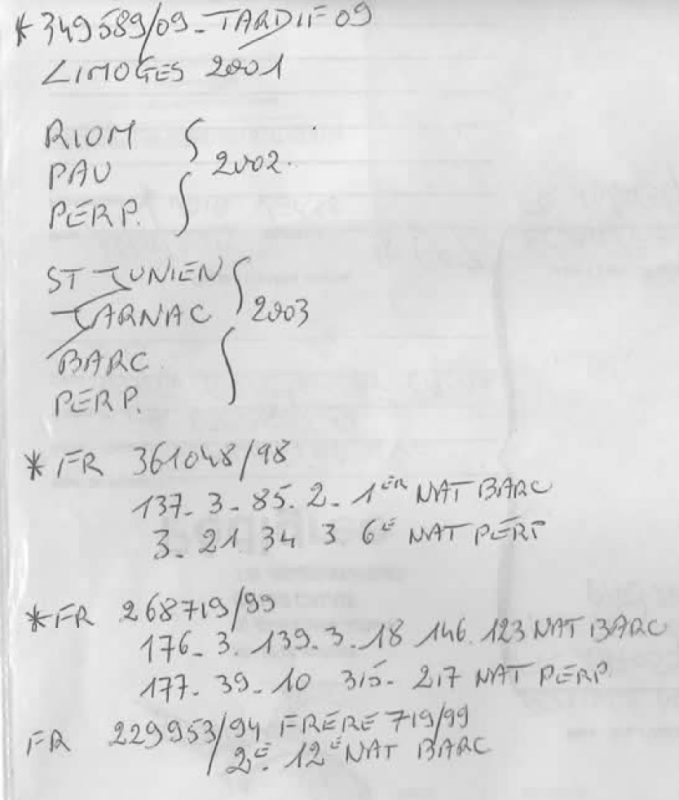 * 349589/09 - TARDIF 09
LIMOGES 2001
RIOM
PAU 2002.
PERP.
ST JUNIEN
JARNAC 2003
BARC.
PERP.
* FR 361048/98
137. 3. 85. 2. 1ER NAT BARC
3. 21 34 3 6E NAT PERP
* FR 268719/99
176. 3. 139. 3. 18 146. 123 NAT BARC
177. 39. 10 315. 217 NAT PERP
FR 229953/94 FRERE 719/99
2E. 12E NAT BARC